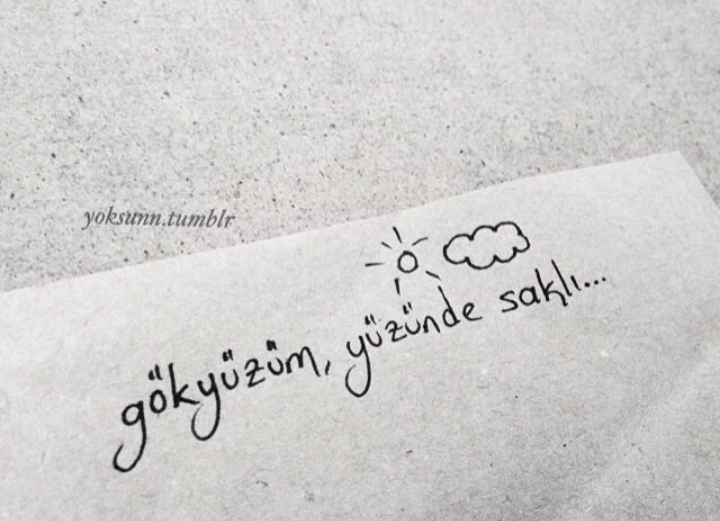 yoksunn.tumblr
gökyüzüm, yüzünde saklı...